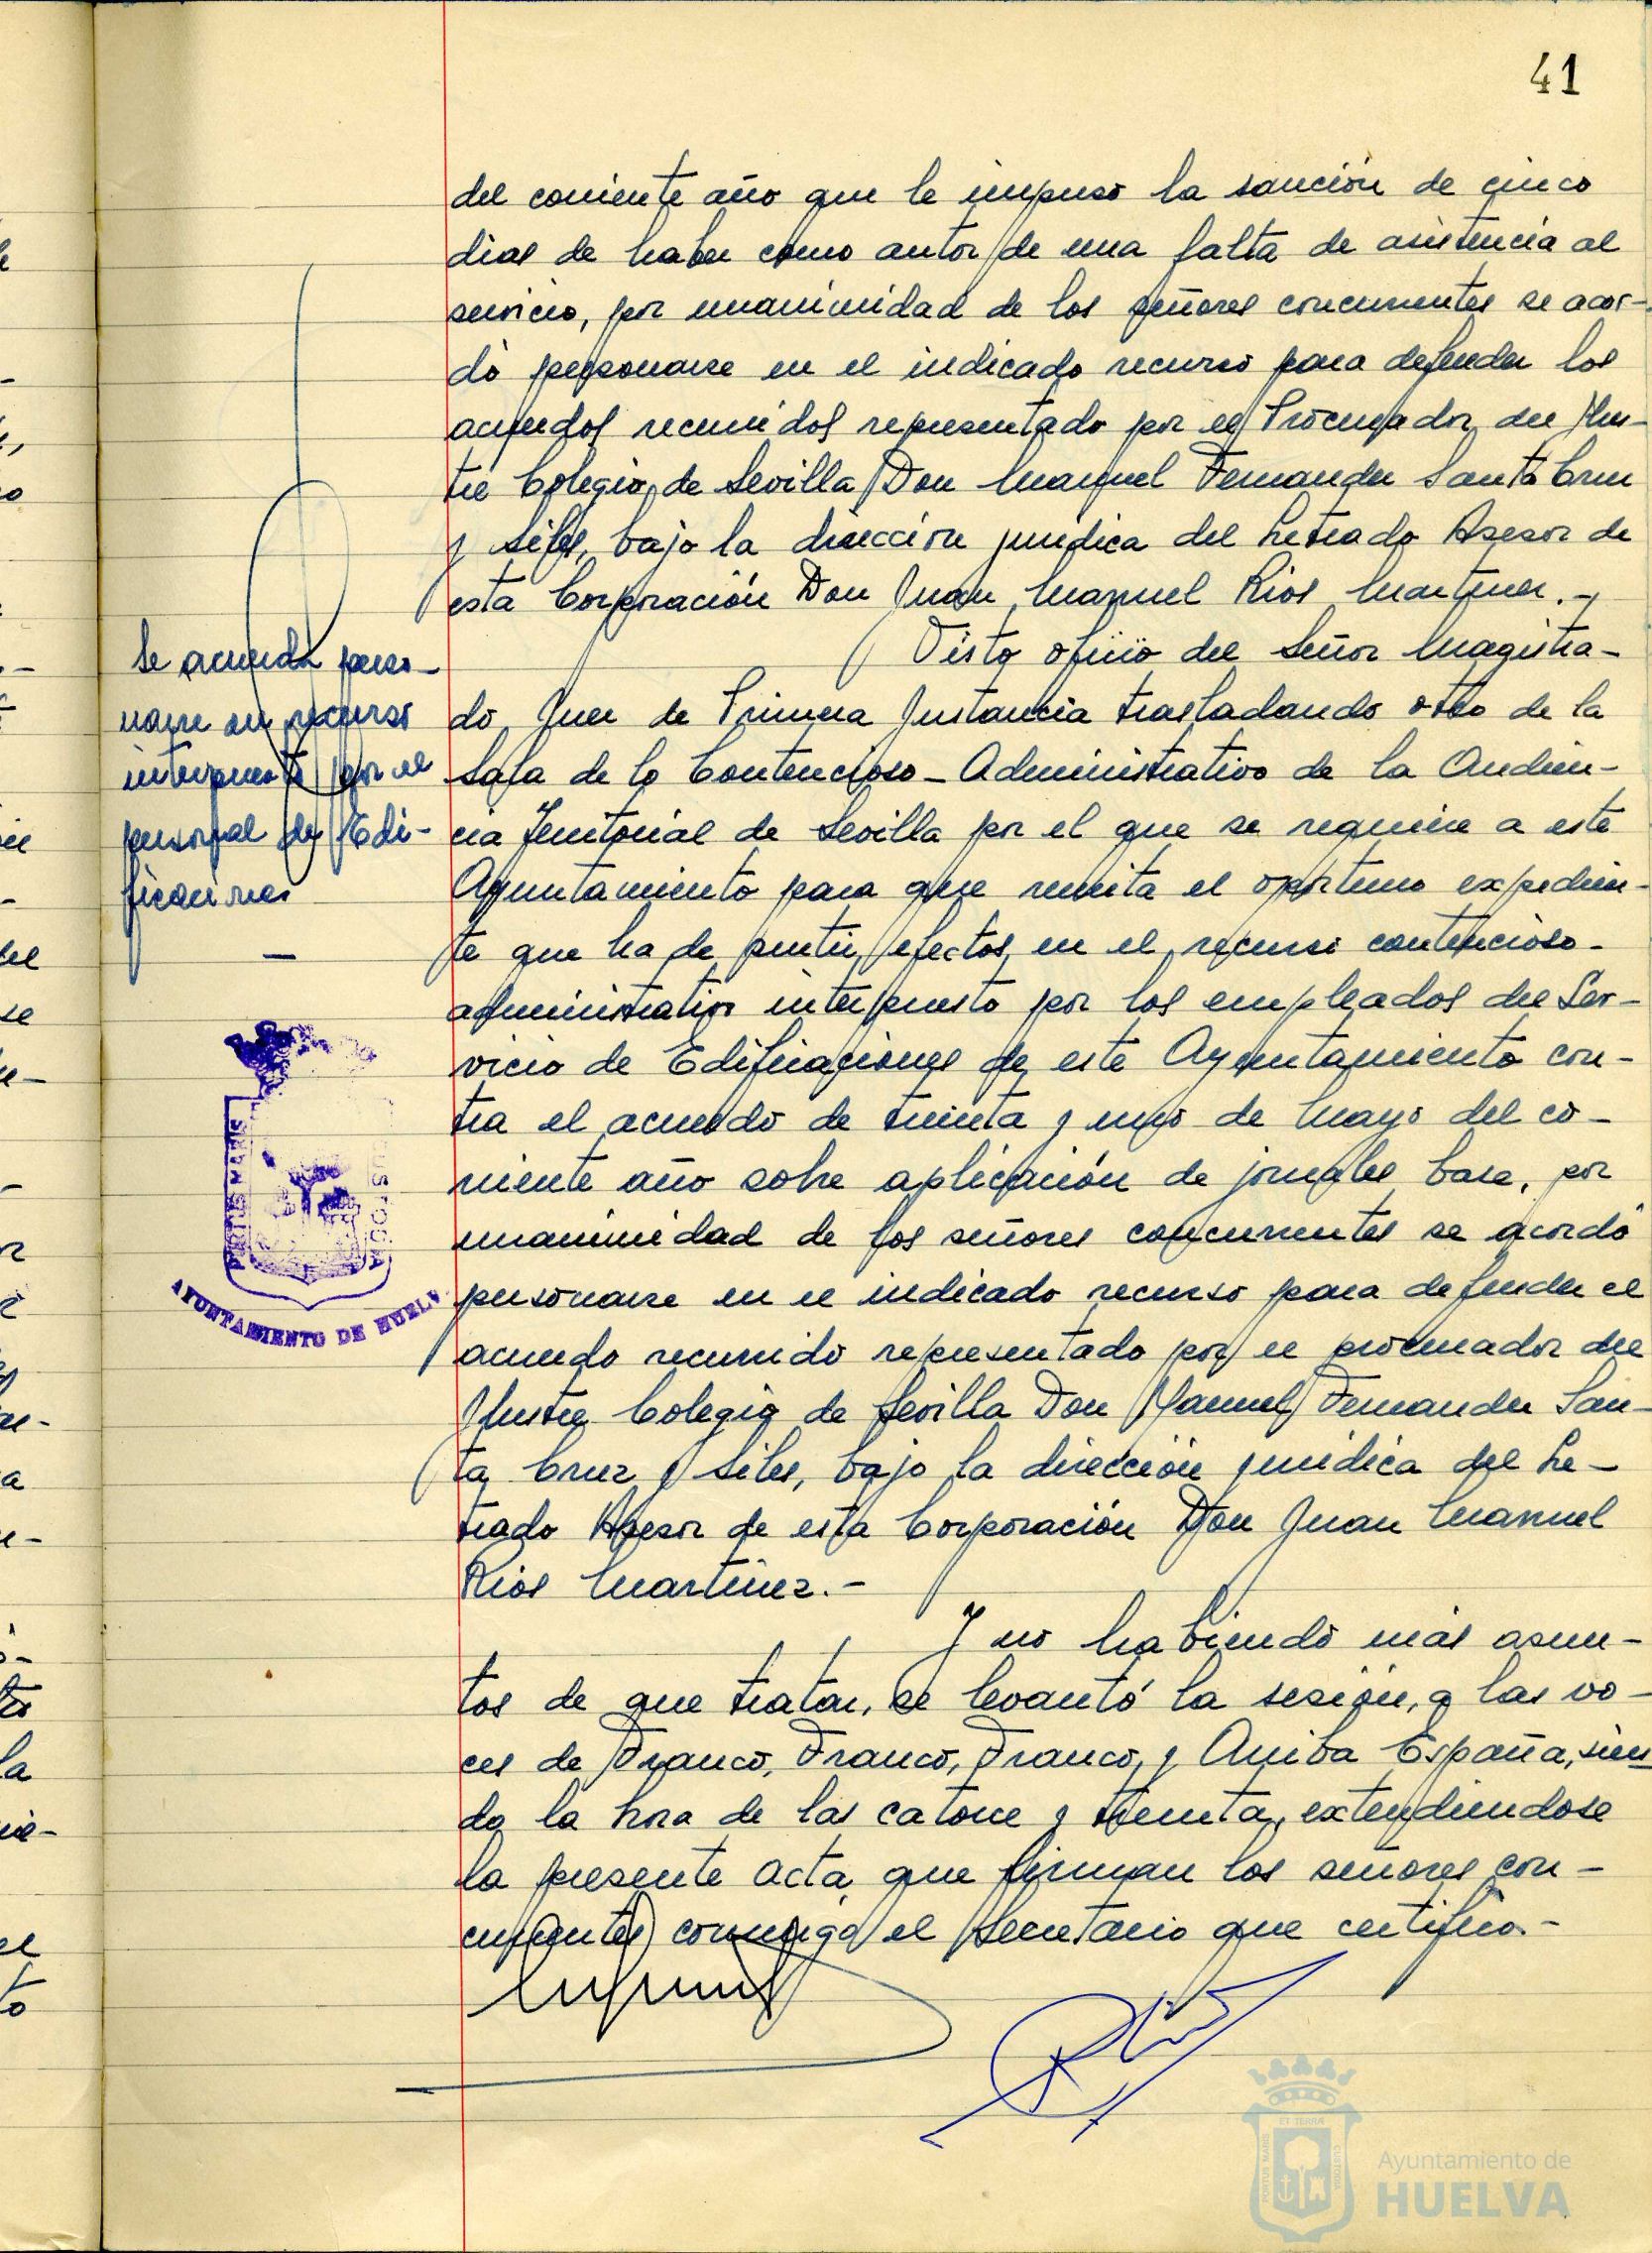 41
del corriente año que le impuso la sanción de cinco
dias de haber como autor de una falta de asistencia al
servicio, por unanimidad de los señores concurrentes se acor-
dó personarse en el indicado recurso para defender los
acuerdos recurridos representado por el Procurador del Ilus-
tre Colegio de Sevilla Don Manuel Fernandez Santa Cruz
y Siles, bajo la dirección juridica del Letrado Asesor de
esta Corporación Don Juan Manuel Rios Martinez.-
Se acuerda perso-
narse en recurso
interpuesto por el
personal de Edi-
ficaciones
—
Visto oficio del Señor Magistra-
do Juez de Primera Instancia trasladando otro de la
Sala de lo Contencioso-Administrativo de la Audien-
cia Territorial de Sevilla por el que se requiere a este
Ayuntamiento para que remita el oportuno expedien-
te que ha de surtir efectos en el recurso contencioso-
administrativo interpuesto por los empleados del Ser-
vicio de Edificaciones de este Ayuntamiento con-
tra el acuerdo de treinta y uno de Mayo del co-
rriente año sobre aplicación de jornales base, por
unanimidad de los señores concurrentes se acordó
personarse en el indicado recurso para defender el
acuerdo recurrido representado por el procurador del
Ilustre Colegio de Sevilla Don Manuel Fernandez San-
ta Cruz y Siles, bajo la dirección juridica del Le-
trado Asesor de esta Corporación Don Juan Manuel
Rios Martinez.-
Y no habiendo más asun-
tos de que tratar, se levantó la sesión, a las vo-
ces de Franco, Franco, Franco, y Arriba España, sien
do la hora de las catorce y treinta, extendiendose
la presente acta, que firman los señores con-
currentes conmigo el Secretario que certifico.-
PORTUS MARIS
CUSTODIA
AYUNTAMIENTO DE HUELVA
Ayuntamiento de
HUELVA